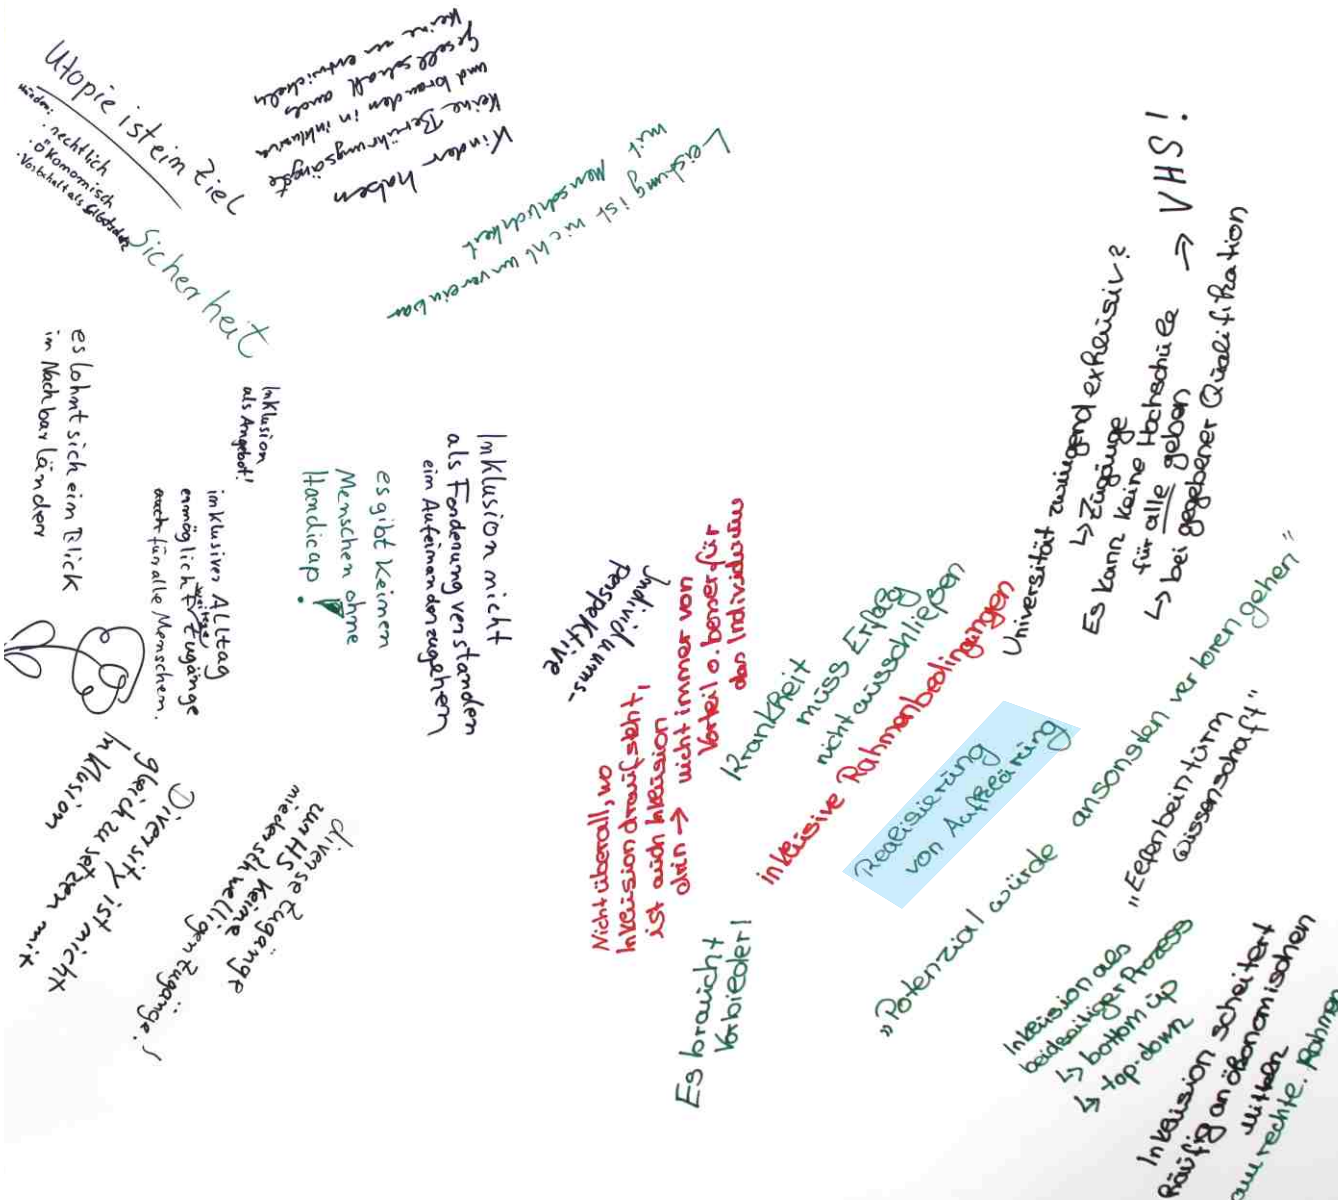 Utopie ist ein Ziel
Hürden:
· rechtlich
· ökonomisch
· Vorbehalt als Selbstschutz
Kinder haben
keine Berührungsängste
und brauchen in inklusiver
Gesellschaft auch
keine zu entwickeln
Leistung ist nicht unvereinbar
mit Menschlichkeit
Sicherheit
es lohnt sich ein Blick
im Nachbarländer
Inklusion
als Angebot!
inklusiver Alltag
ermöglicht weitere Zugänge
auch für alle Menschen.
es gibt keinen
Menschen ohne
Handicap!
Inklusion nicht
als Forderung verstanden
ein Aufeinanderzugehen
Individuums-
perspektive
Diversity ist nicht
gleich zu setzen mit
Inklusion
diverse Zugänge
zur HS keine
niederschwelligen Zugänge!
Nicht überall, wo
Inklusion draufsteht,
ist auch Inklusion
drin → nicht immer von
Vorteil o. besser für
das Individuum
Krankheit
muss Erfolg
nicht ausschließen
inklusive Rahmenbedingungen
Realisierung
von Aufklärung
Es braucht
Vorbilder!
Universität zwingend exklusiv?
↳ Zugänge
Es kann keine Hochschule
für alle geben → VHS!
↳ bei gegebener Qualifikation
„Potenzial würde ansonsten verloren gehen"
„Elfenbeinturm
Wissenschaft"
Inklusion als
beidseitiger Prozess
↳ bottom up
↳ top-down
Inklusion scheitert
häufig an ökonomischen
Mitteln
rechtl. Rahmen